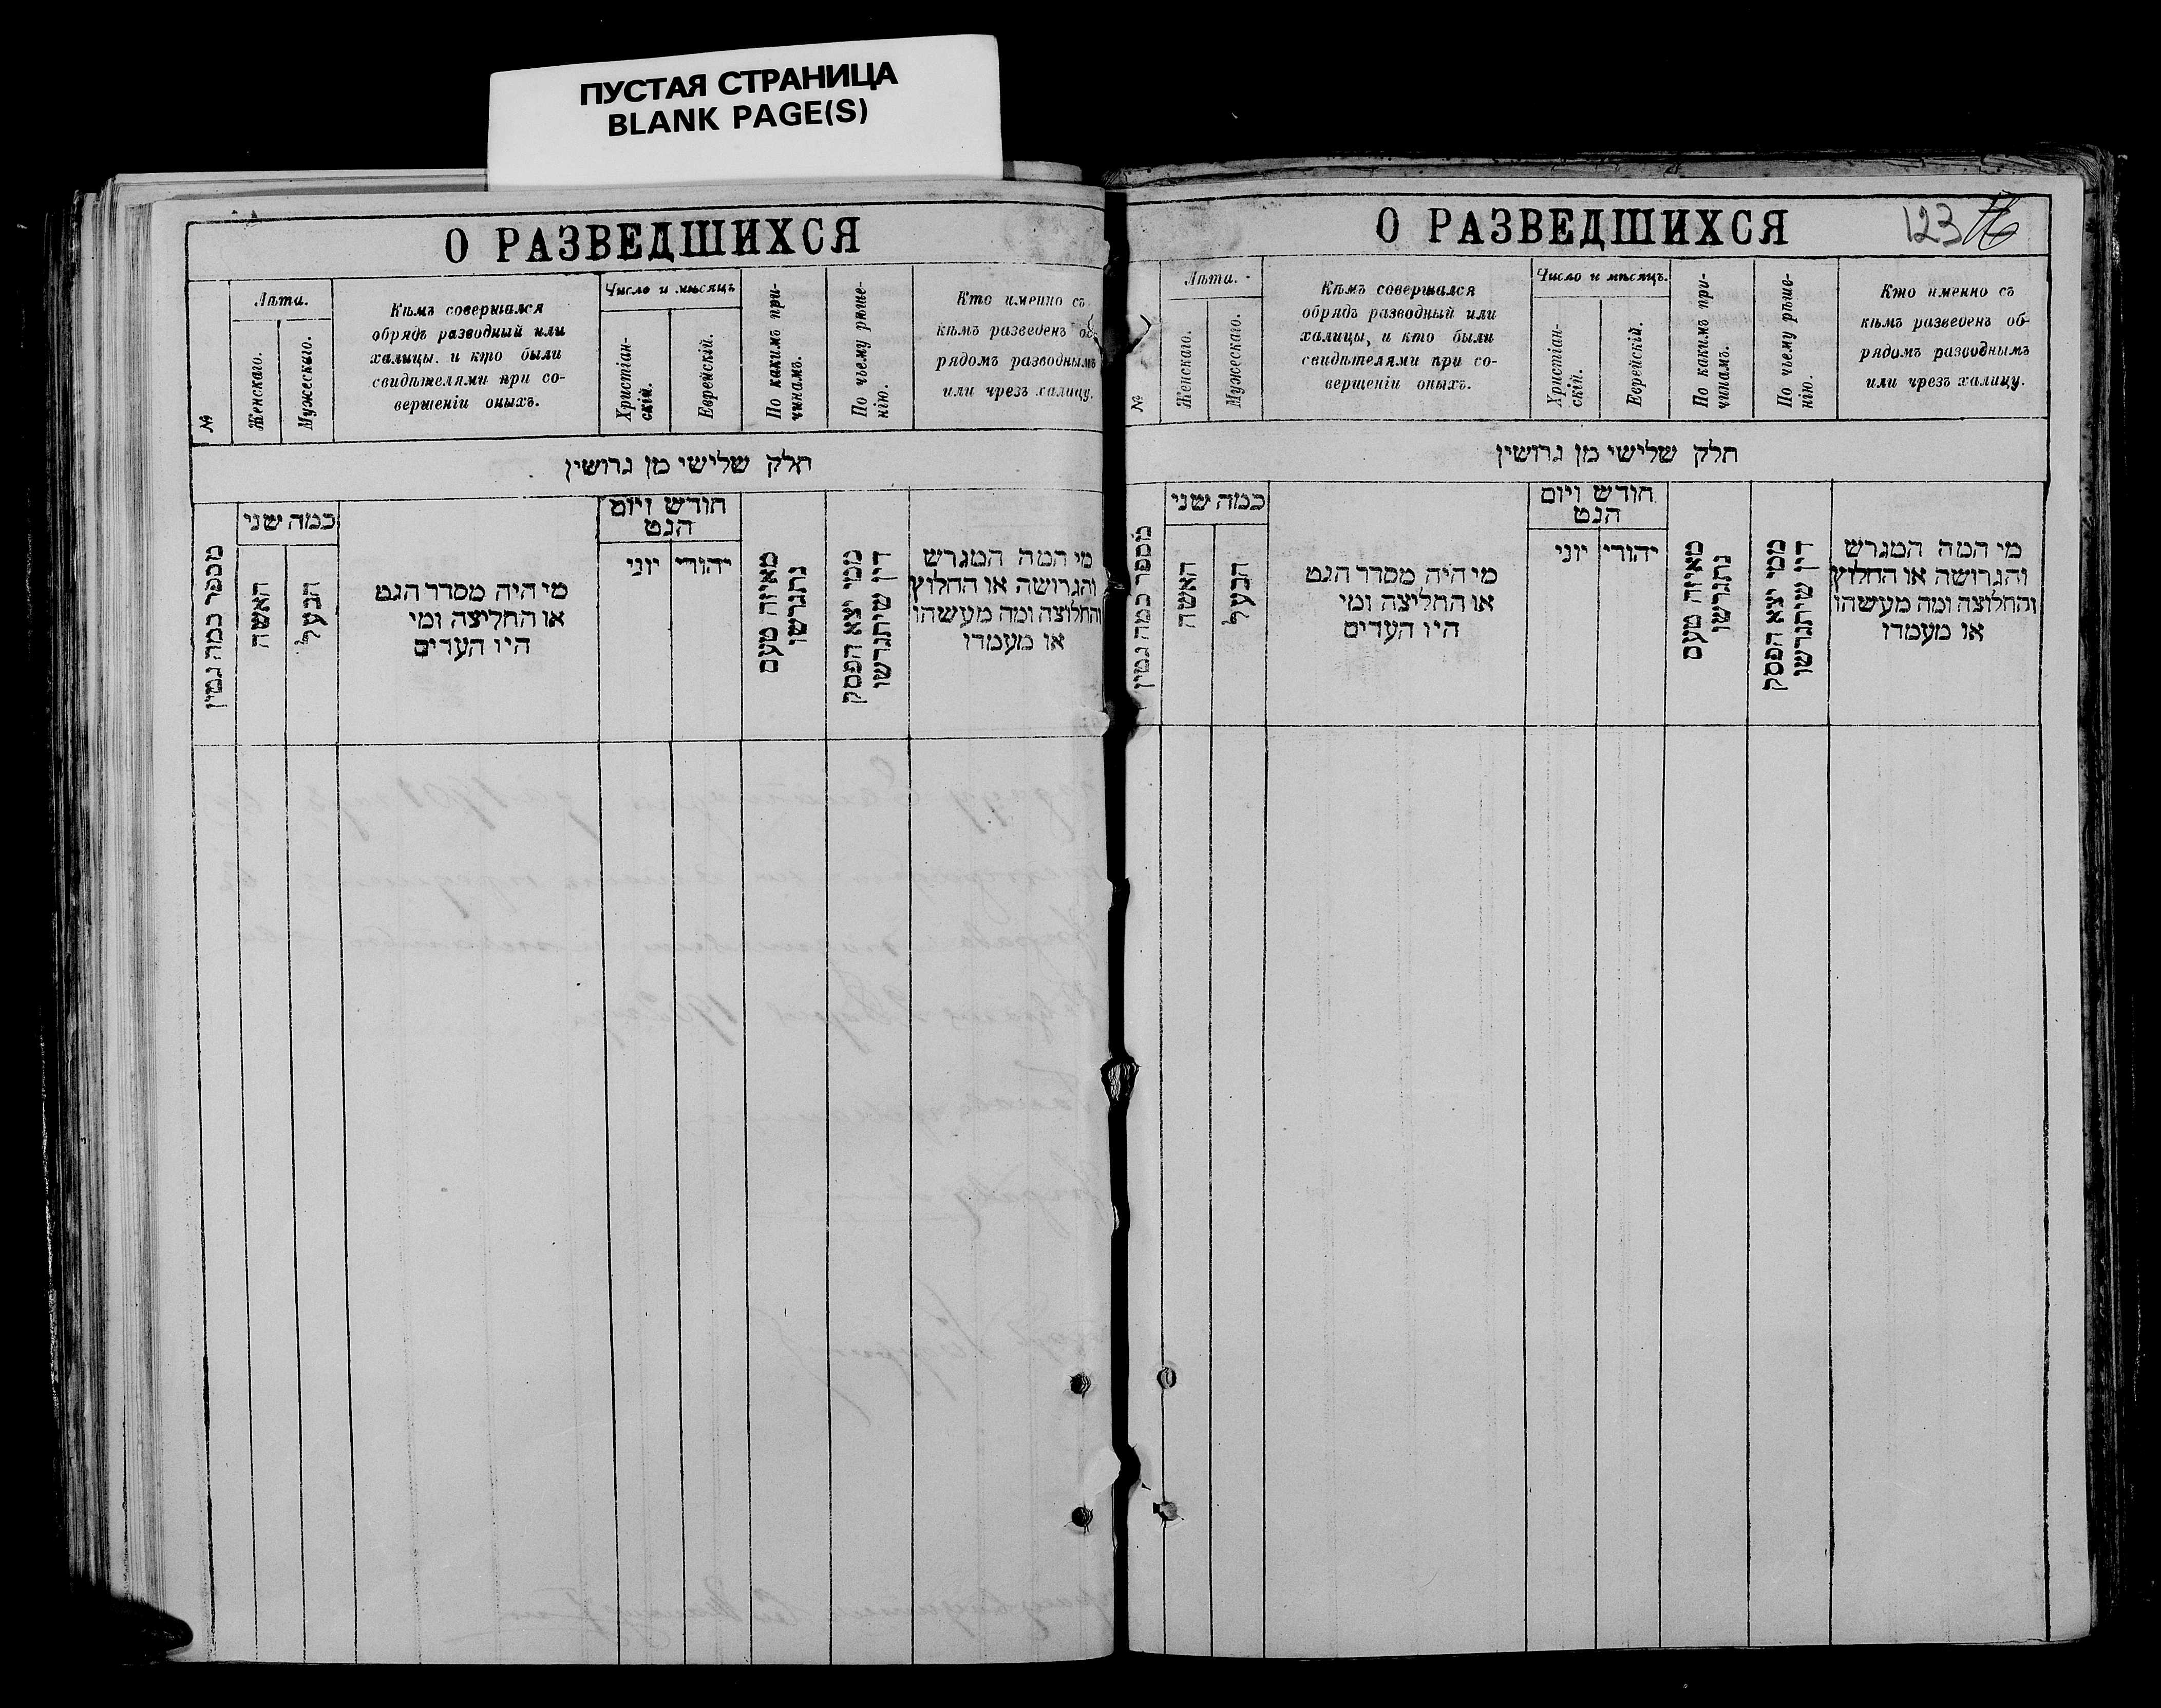 ПУСТАЯ СТРАНИЦА
BLANK PAGE(S)
О РАЗВЕДШИХСЯ
№
Лѣта.
Женскаго.
Мужескаго.
Кѣмъ совершался
обрядъ разводный или
халицы. и кто были
свидѣтелями при со-
вершеніи оныхъ.
Число и мѣсяцъ
Христіан-
скій.
Еврейскій.
По какимъ при-
чинамъ.
По чьему рѣше-
нію.
Кто именно съ
кѣмъ разведенъ об-
рядомъ разводнымъ
или чрезъ халицу.
חלק שלישי מן גרושין
מספר כמה גטין
כמה שני
האשה
הבעל
מי היה מסדר הגט
או החליצה ומי
היו העדים
חודש ויום
הגט
יוני
יהודי
מאיזה טעם
נתגרשו
ממי יצא הפסק
דין שיתגרשו
מי המה המגרש
והגרושה או החלוץ
והחלוצה ומה מעשהו
או מעמדו
О РАЗВЕДШИХСЯ
123
№
Лѣта.
Женскаго.
Мужескаго.
Кѣмъ совершался
обрядъ разводный или
халицы, и кто были
свидѣтелями при со-
вершеніи оныхъ.
Число и мѣсяцъ.
Христіан-
скій.
Еврейскій.
По какимъ при-
чинамъ.
По чьему рѣше-
нію.
Кто именно съ
кѣмъ разведенъ об-
рядомъ разводнымъ
или чрезъ халицу.
חלק שלישי מן גרושין
מספר כמה גטין
כמה שני
האשה
הבעל
מי היה מסדר הגט
או החליצה ומי
היו העדים
חודש ויום
הגט
יוני
יהודי
מאיזה טעם
נתגרשו
ממי יצא הפסק
דין שיתגרשו
מי המה המגרש
והגרושה או החלוץ
והחלוצה ומה מעשהו
או מעמדו